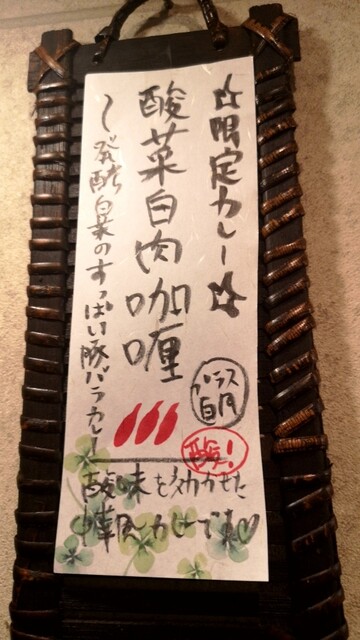 ☆限定カレー☆
酸菜白肉咖喱
～発酵白菜のすっぱい豚バラカレー
プラス
酸!
酸味を効かせた
カレーです♡